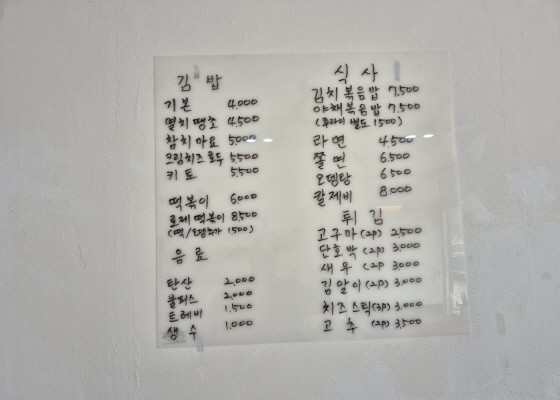 김밥
기본 4,000
멸치땡초 4,500
참치마요 5,000
크림치즈호두 5,500
키토 5,500
떡볶이 6,000
로제떡볶이 8,500
(떡/오뎅추가 1,500)
음료
탄산 2,000
쿨피스 2,000
트레비 1,500
생수 1,000
식사
김치볶음밥 7,500
야채볶음밥 7,500
(후라이 별도 1,500)
라면 4,500
쫄면 6,500
오뎅탕 6,500
칼제비 8,000
튀김
고구마 (2p) 2,500
단호박 (2p) 3,000
새우 (2p 3,000
김말이 (2p) 3,000
치즈스틱 (3p) 3,000
고추 (2p) 3,500